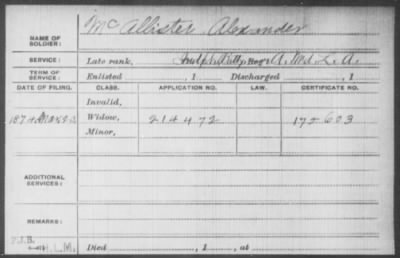 NAME OF SOLDIER: McAllister Alexander
SERVICE: Late rank, Batty A, Md. L. A.
TERM OF SERVICE: Enlisted , 1 Discharged , 1
DATE OF FILING. CLASS. APPLICATION NO. LAW. CERTIFICATE NO.
Invalid,
1874 Mar 20 Widow, 214472 172603
Minor,
ADDITIONAL SERVICES:
REMARKS:
Died , 1 , at